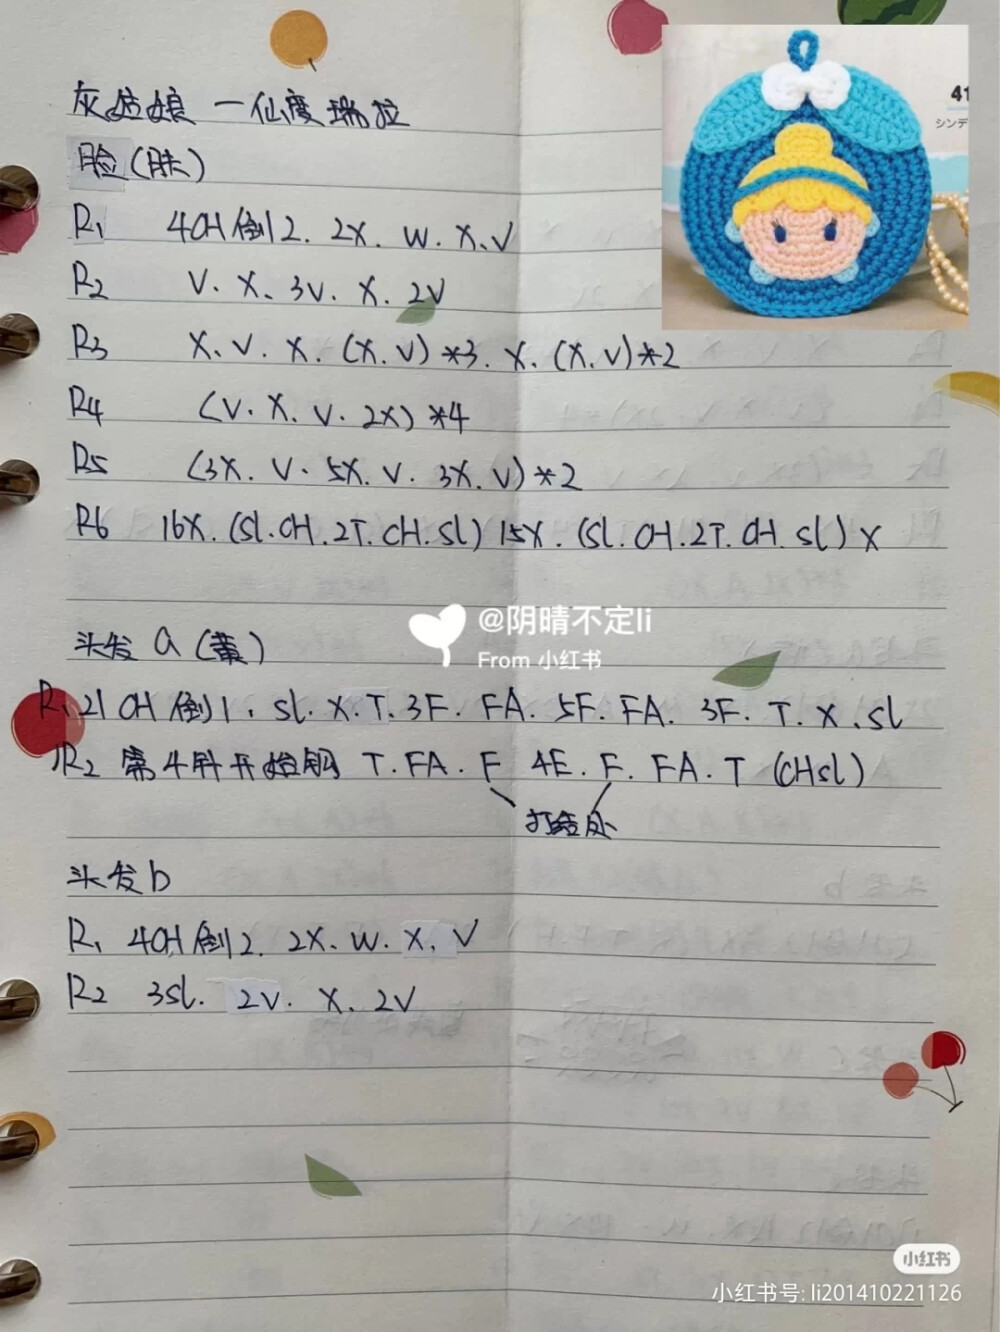 灰姑娘 — 仙度瑞拉
41
シンデ
脸(肤)
R1 4CH倒2. 2X. W. X. V
R2 V. X. 3V. X. 2V
R3 X. V. X. (X. V)*3. X. (X. V)*2
R4 (V. X. V. 2X)*4
R5 (3X. V. 5X. V. 3X. V)*2
R6 16X. (sl. CH. 2T. CH. sl) 15X. (sl. CH. 2T. CH. sl) X
@阴晴不定li
From 小红书
头发 a (黄)
R1 21CH倒1. sl. X. T. 3F. FA. 5F. FA. 3F. T. X. sl
R2 第4针开始钩 T. FA. F 4E. F. FA. T (CHsl)
打结处
头发b
R1 4CH倒2. 2X. W. X. V
R2 3sl. 2V. X. 2V
小红书
小红书号: li201410221126